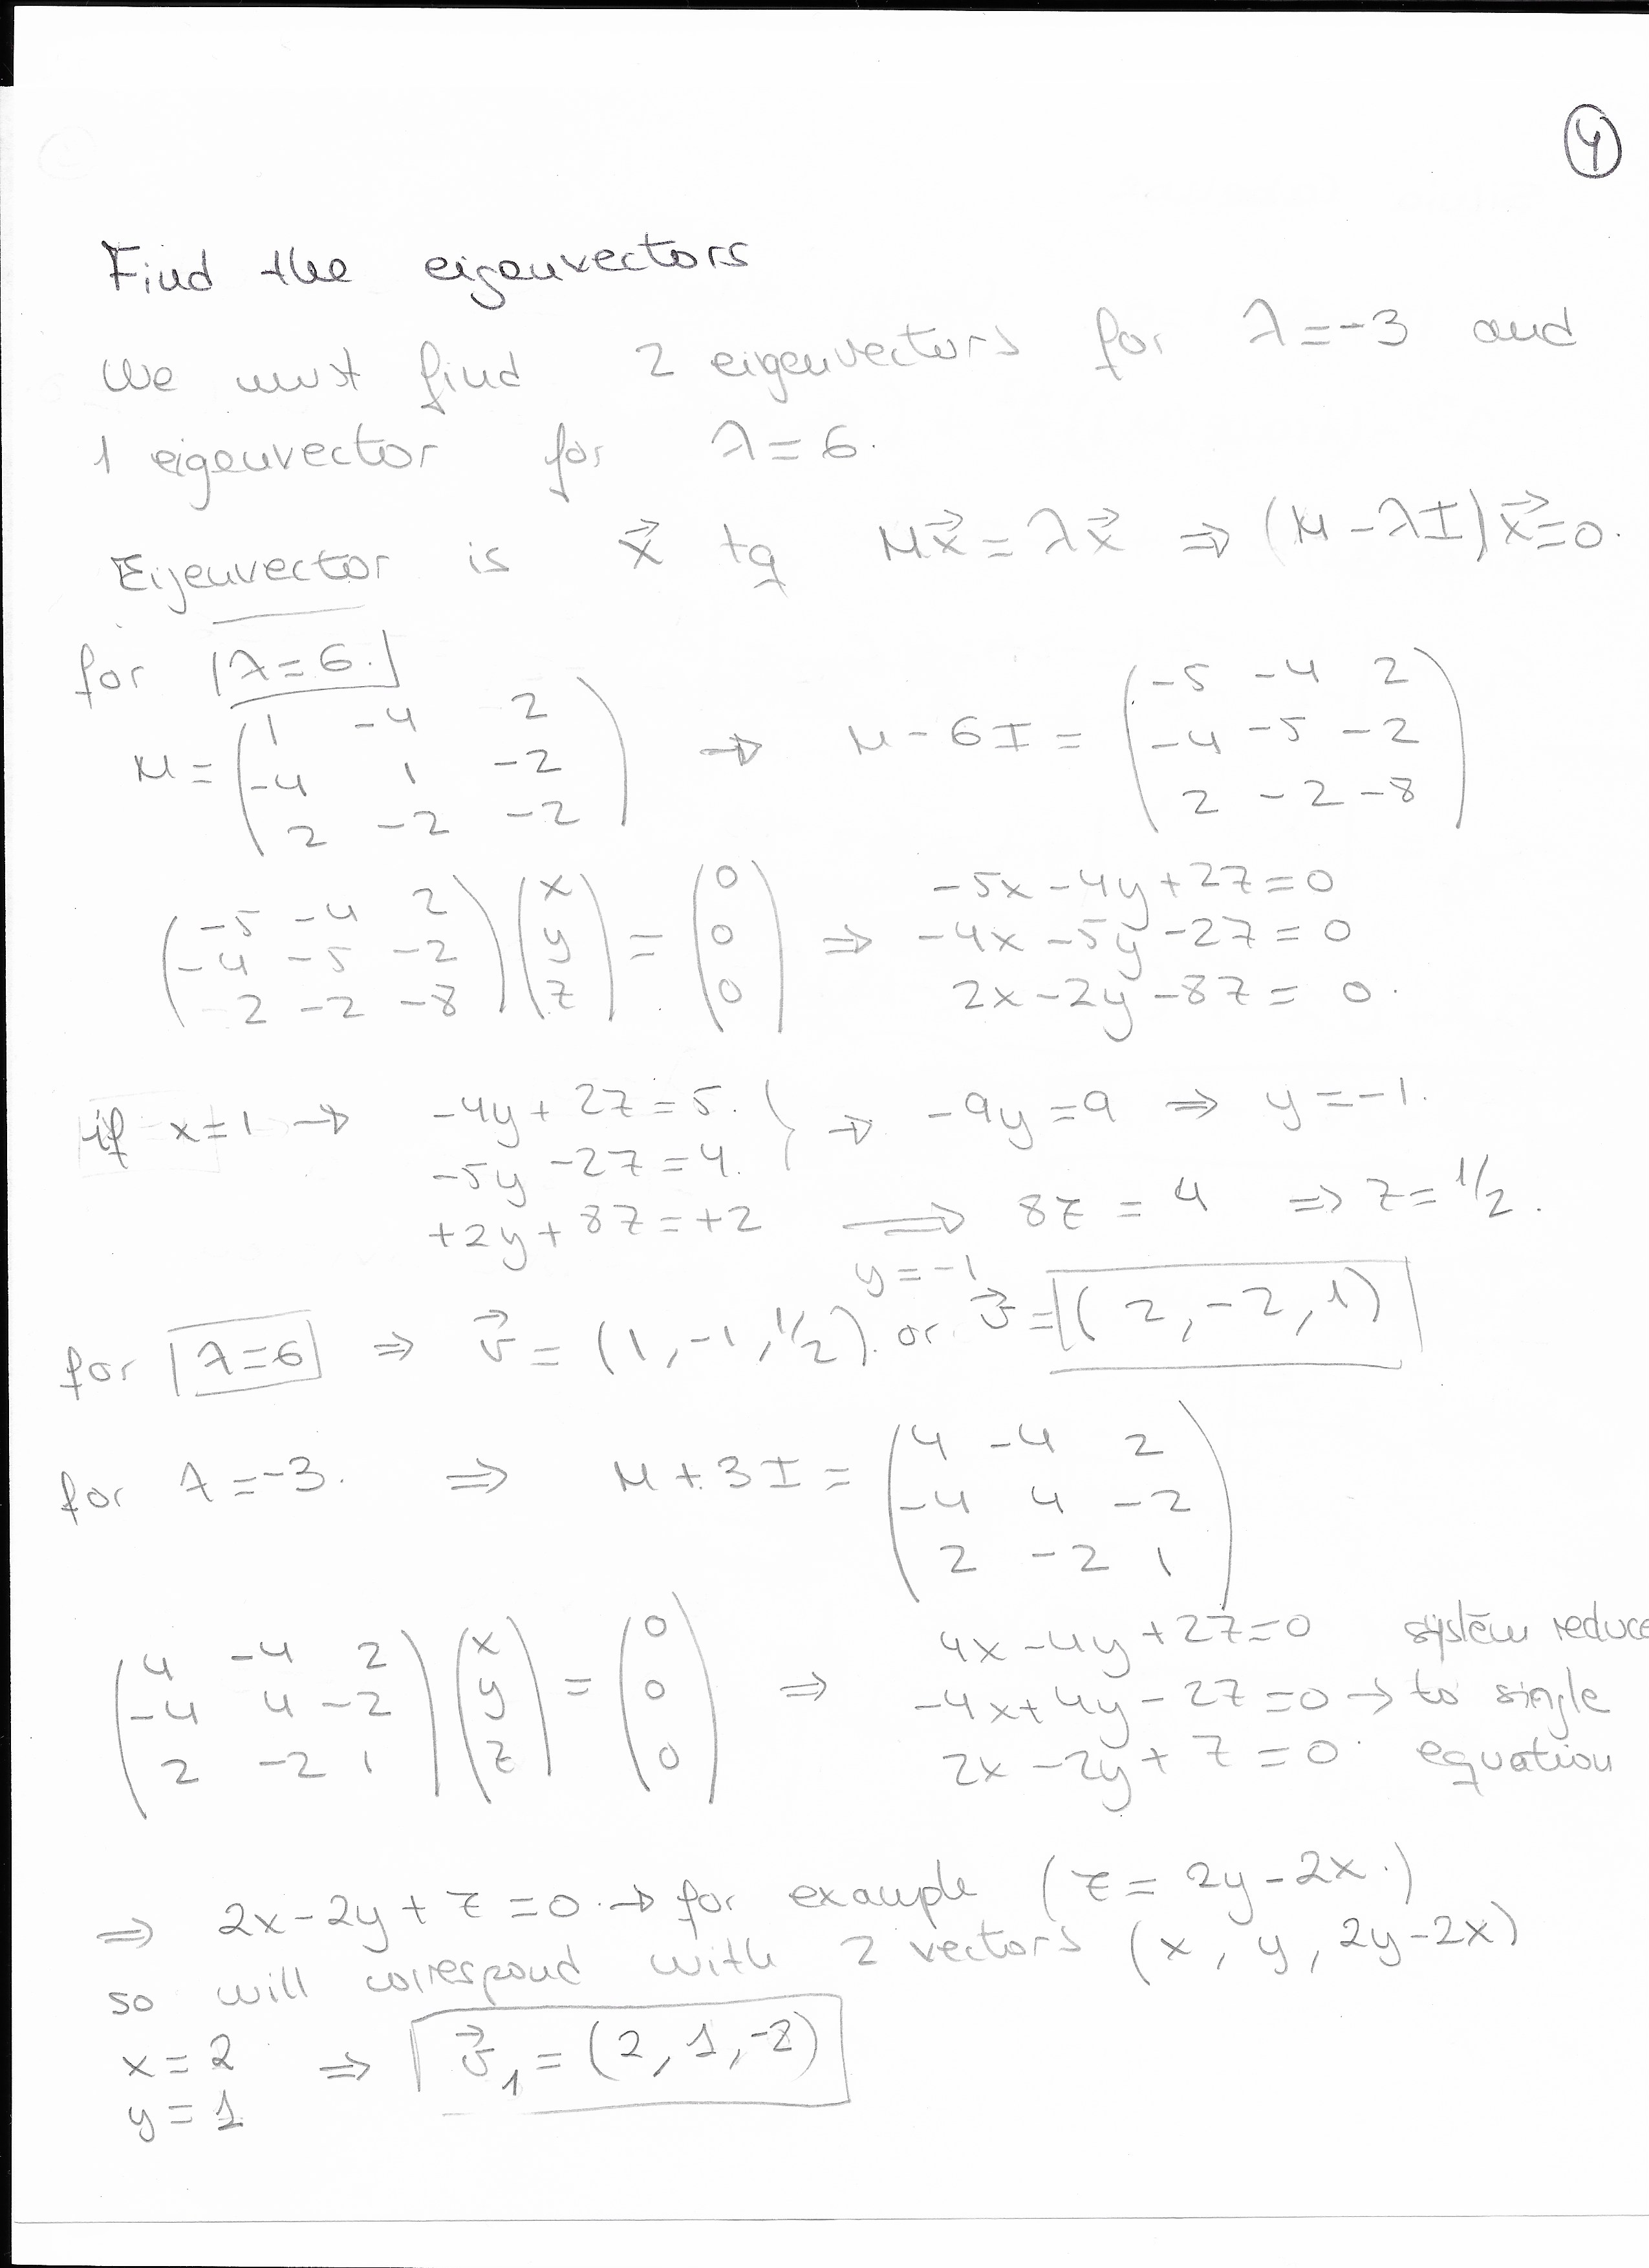 4
Find the eigenvectors
We must find 2 eigenvectors for λ=-3 and
1 eigenvector for λ=6.
Eigenvector is x⃗ tq Mx⃗=λx⃗ ⇒ (M-λI)x⃗=0.
for λ=6.
M = (1 -4 2; -4 1 -2; 2 -2 -2) → M-6I = (-5 -4 2; -4 -5 -2; 2 -2 -8)
(-5 -4 2; -4 -5 -2; 2 -2 -8) (x; y; z) = (0; 0; 0) ⇒
-5x-4y+2z=0
-4x-5y-2z=0
2x-2y-8z=0.
if x=1 → -4y+2z=5.
-5y-2z=4. } → -9y=9 ⇒ y=-1.
+2y+8z=+2 ⟹ y=-1 8z=4 ⇒ z=1/2.
for λ=6 ⇒ v⃗=(1,-1,1/2) or v⃗=(2,-2,1)
for λ=-3. ⇒ M+3I = (4 -4 2; -4 4 -2; 2 -2 1)
(4 -4 2; -4 4 -2; 2 -2 1) (x; y; z) = (0; 0; 0) ⇒
4x-4y+2z=0 system reduce
-4x+4y-2z=0 → to single
2x-2y+z=0. equation
⇒ 2x-2y+z=0. → for example (z=2y-2x.)
so will correspond with 2 vectors (x, y, 2y-2x)
x=2 ⇒ v⃗₁=(2,1,-2)
y=1